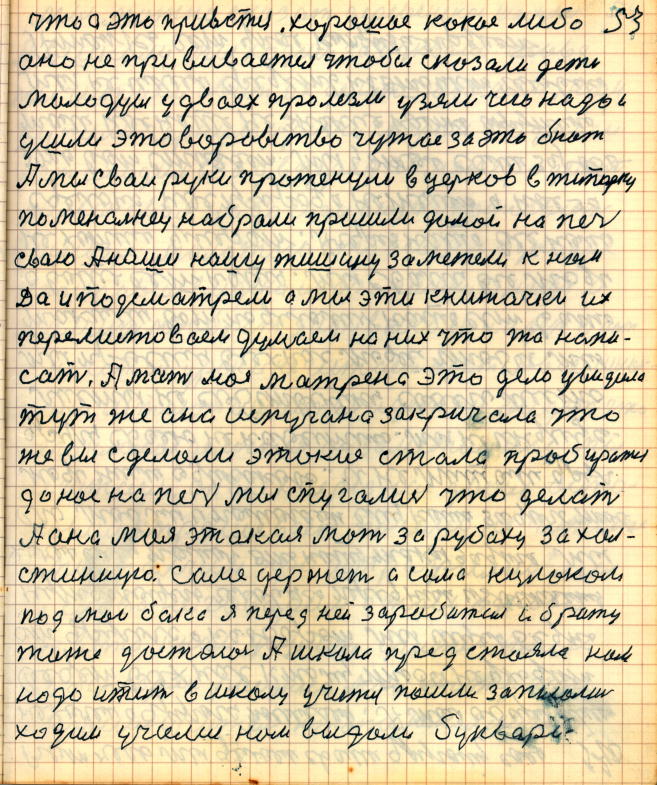 что а это привется. хорошае кокое либо 53
ано не прививается чтобы сказали дети
молодцы у двоех пролезли узяли чево надо и
ушли это воровство чужое за это бют
А мы сваи руки протенули в церков в
поменалнец набрали пришли домой на печ
сваю А наши нашу тишину заметели к нам
Да и подсматрели а мы эти книжачки их
перелистоваем думаем на них что то напи-
сат. А мат моя матрена это дело увидила
тут же ана испугана закричала что
же вы сделоли этокие стала пробиратся
до нас на печ мы спугалис что делат
А ана моя этакая мат за рубаху захол-
стинную саме держет а сама кулоком
под мои бака я перед ней заработал и брату
тоже досталос А школа предстояла нам
надо итит в школу учится пошли записалис
ходим училис нам выдали буквари